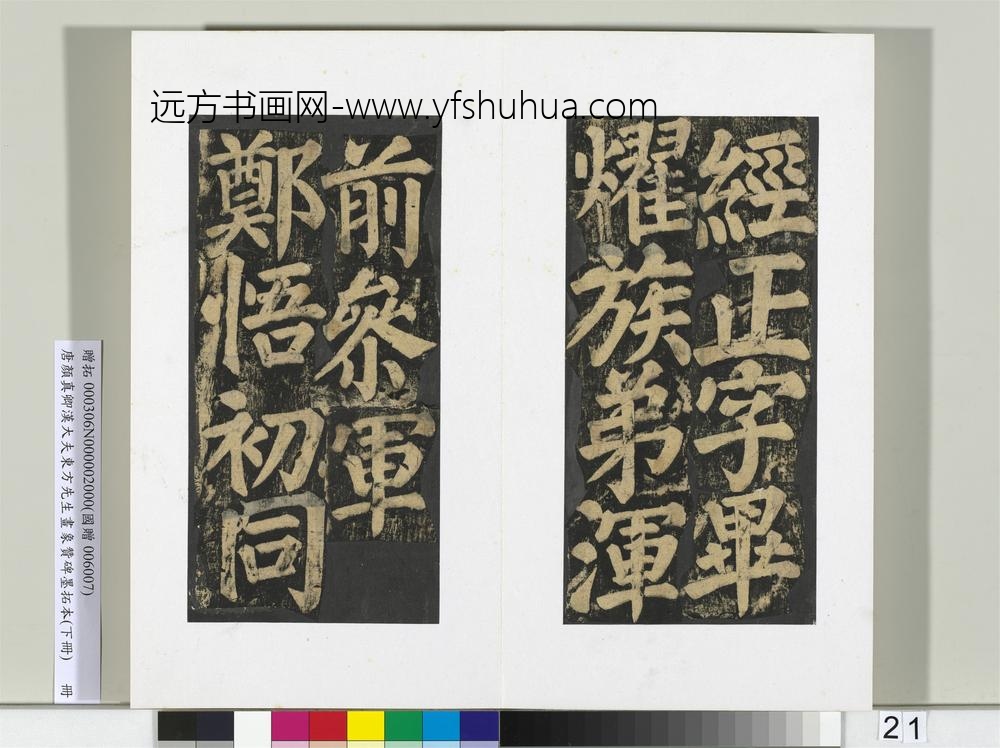 远方书画网-www.yfshuhua.com
經正字畢
耀族弟渾
前參軍
鄭悟初同
贈拓 000306N000002000(國贈 006007)
唐顏真卿漢大夫東方先生畫象贊碑墨拓本(下冊) 冊
21